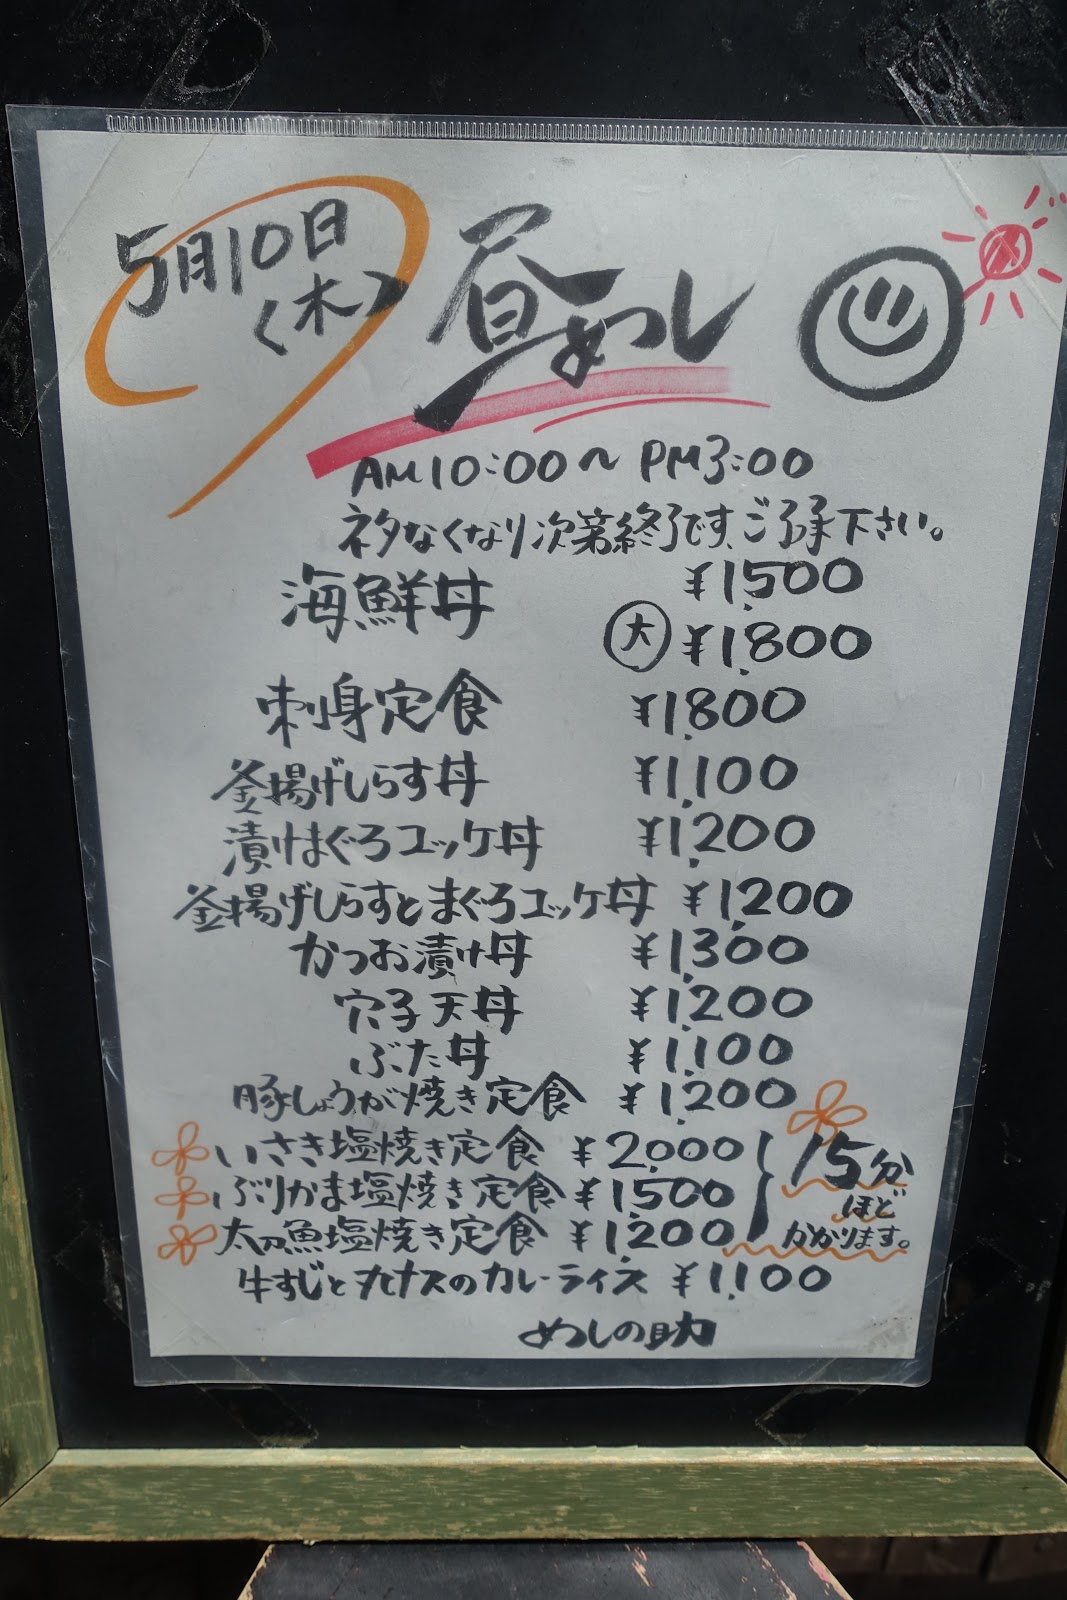 5月10日
(木)
昼めし
AM10:00〜PM3:00
ネタなくなり次第終了です、ご了承下さい。
海鮮丼 ¥1,500
大 ¥1,800
刺身定食 ¥1,800
釜揚げしらす丼 ¥1,100
漬けまぐろユッケ丼 ¥1,200
釜揚げしらすとまぐろユッケ丼 ¥1,200
かつお漬け丼 ¥1,300
穴子天丼 ¥1,200
ぶた丼 ¥1,100
豚しょうが焼き定食 ¥1,200
いさき塩焼き定食 ¥2,000
ぶりかま塩焼き定食 ¥1,500
太刀魚塩焼き定食 ¥1,200
15分
ほど
かかります。
牛すじと丸ナスのカレーライス ¥1,100
めしの助